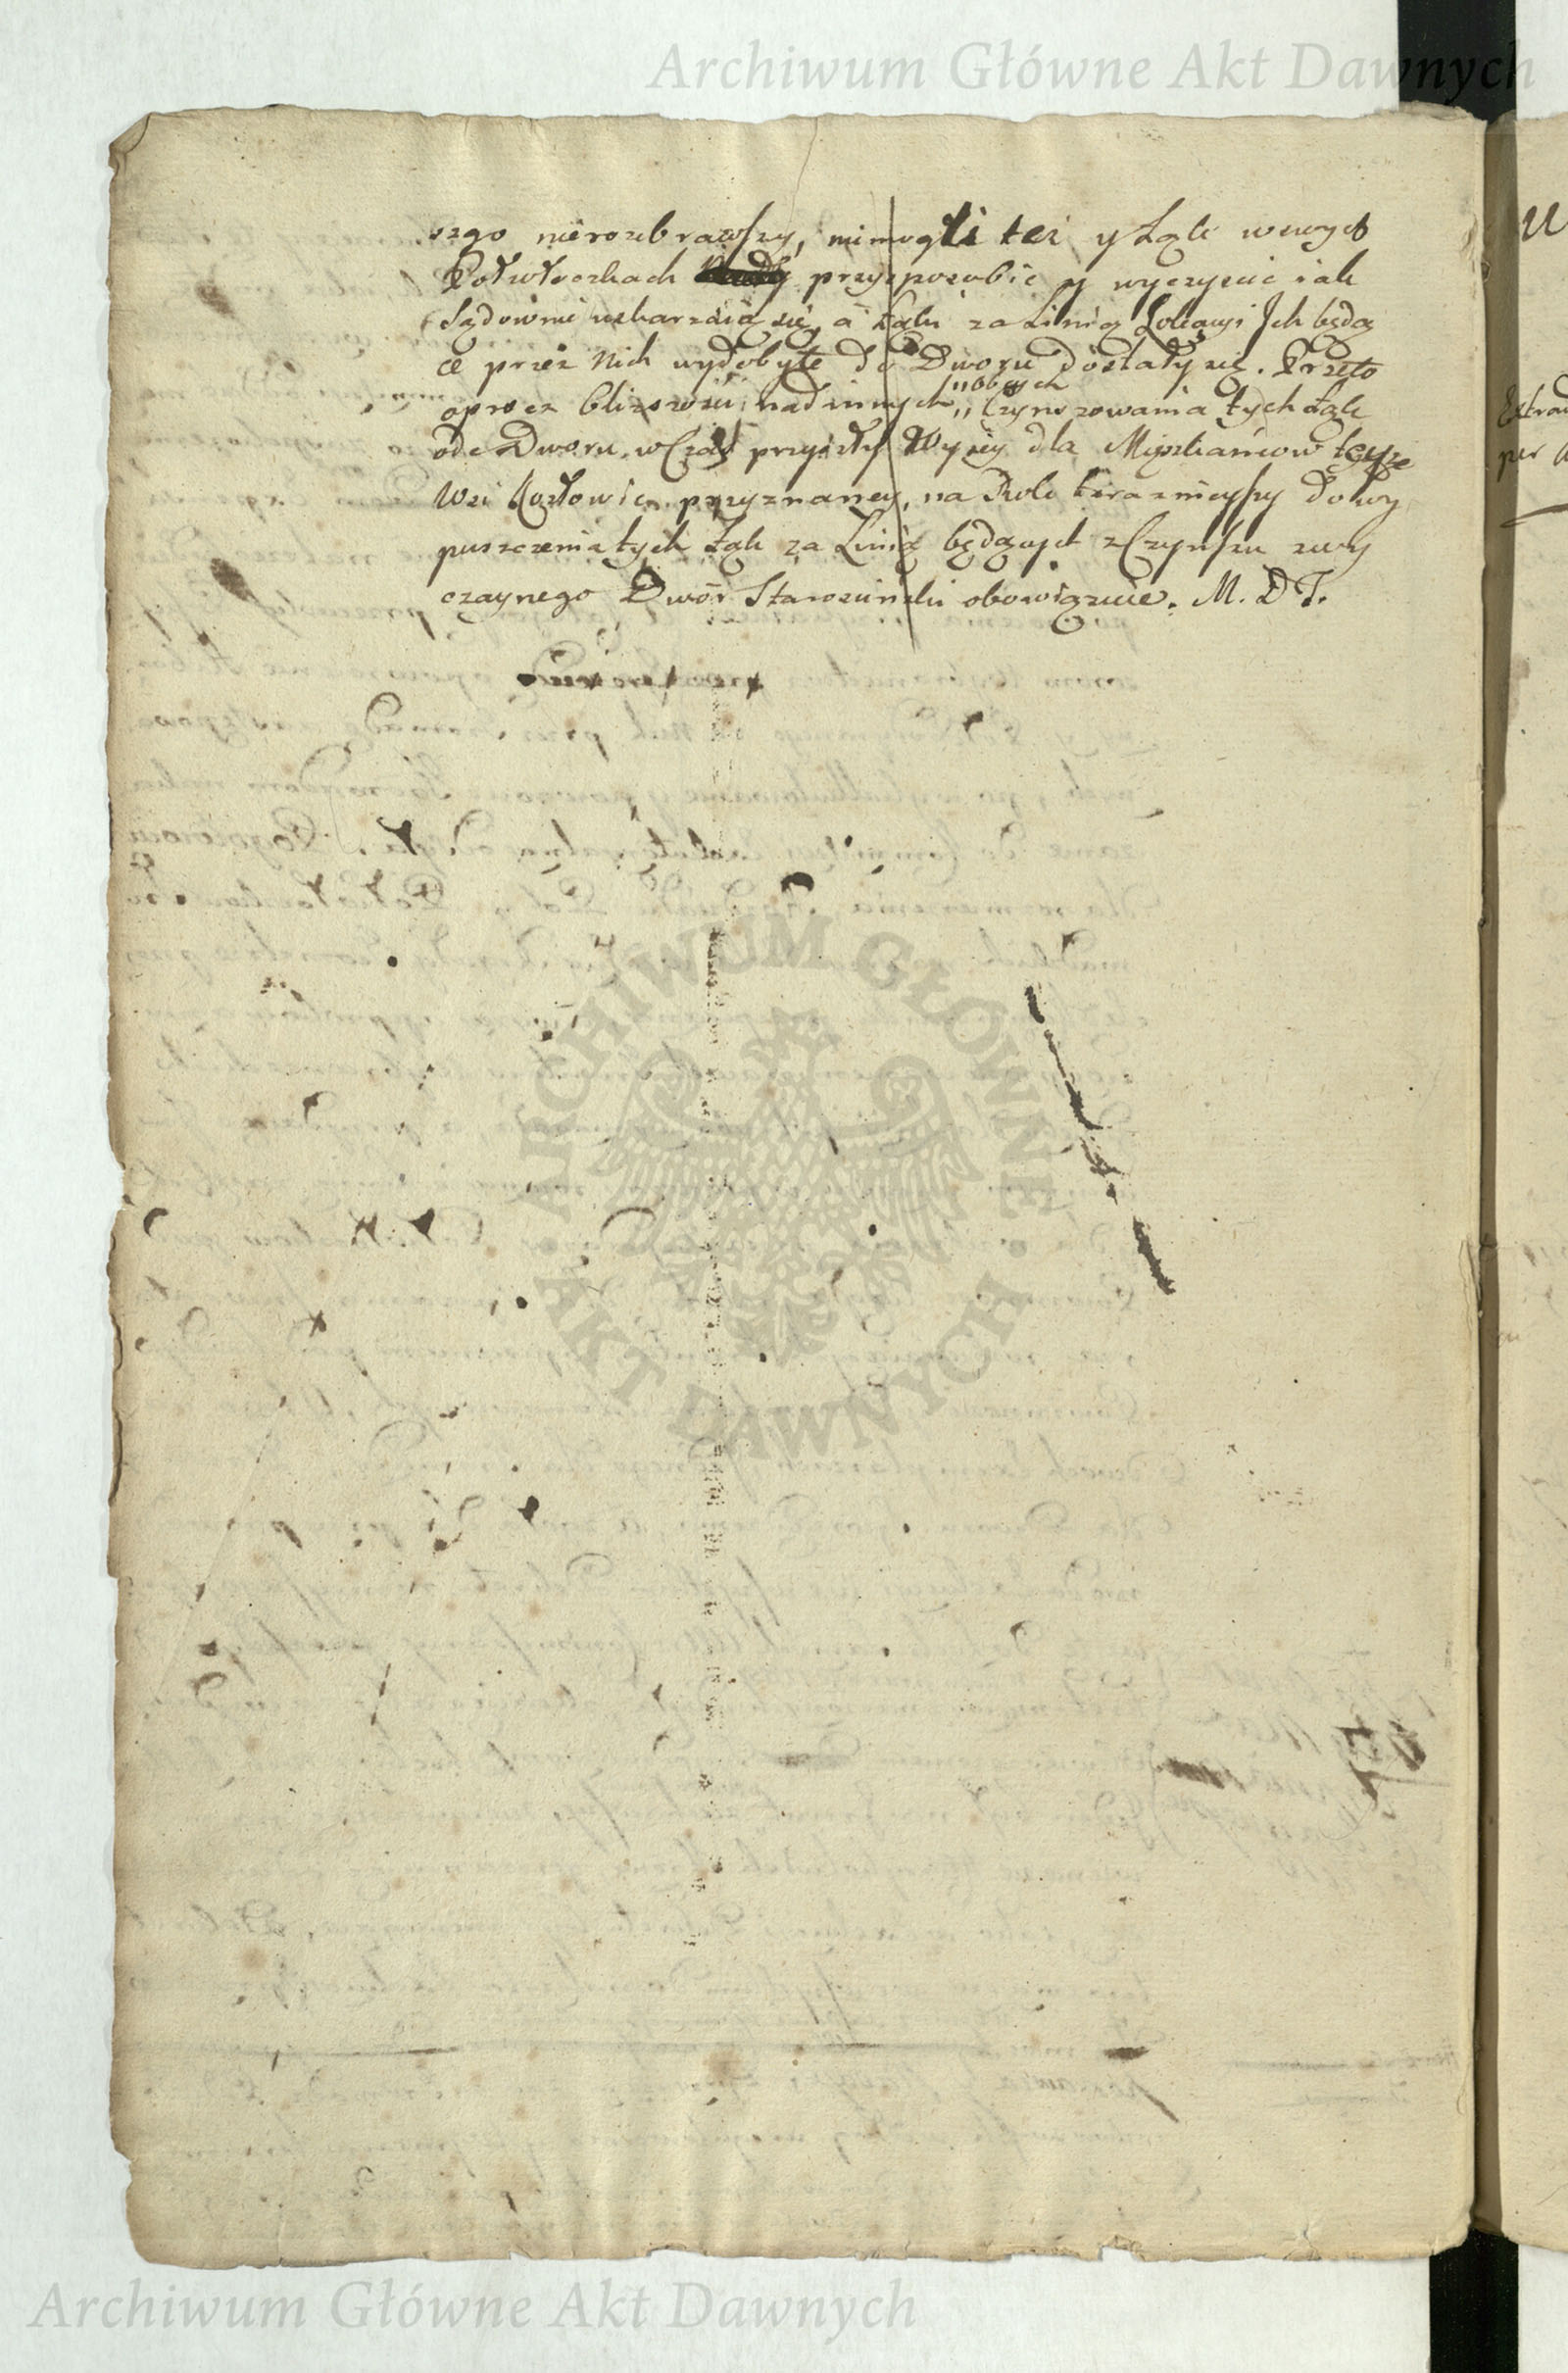 Archiwum Główne Akt Dawnych
szego nierozebrawszy, niemogli też y Łąk w swych
Półwłoczkach przysposobić y wyczyścić iak
Sądownie uskarzaią się, a Łąki za Linią Lokacyi Jch będą
ce przez Nich wydobyte do Dworu dostały się. Przeto
oprócz bliższości nad innych „obcych
„ Czynszowania tych Łąk
ode Dworu w Czas przyszły Wyżey dla Mieszkańcow teyże
Wsi Kozłowice przyznaney, na Rok teraznieyszy do wy
puszczenia tych Łąk za Linią będących z Czynszu zwy
czaynego Dwór Starościński obowiązuie. M. D. J.
ARCHIWUM GŁÓWNE
AKT DAWNYCH
U
Extra
per
Archiwum Główne Akt Dawnych